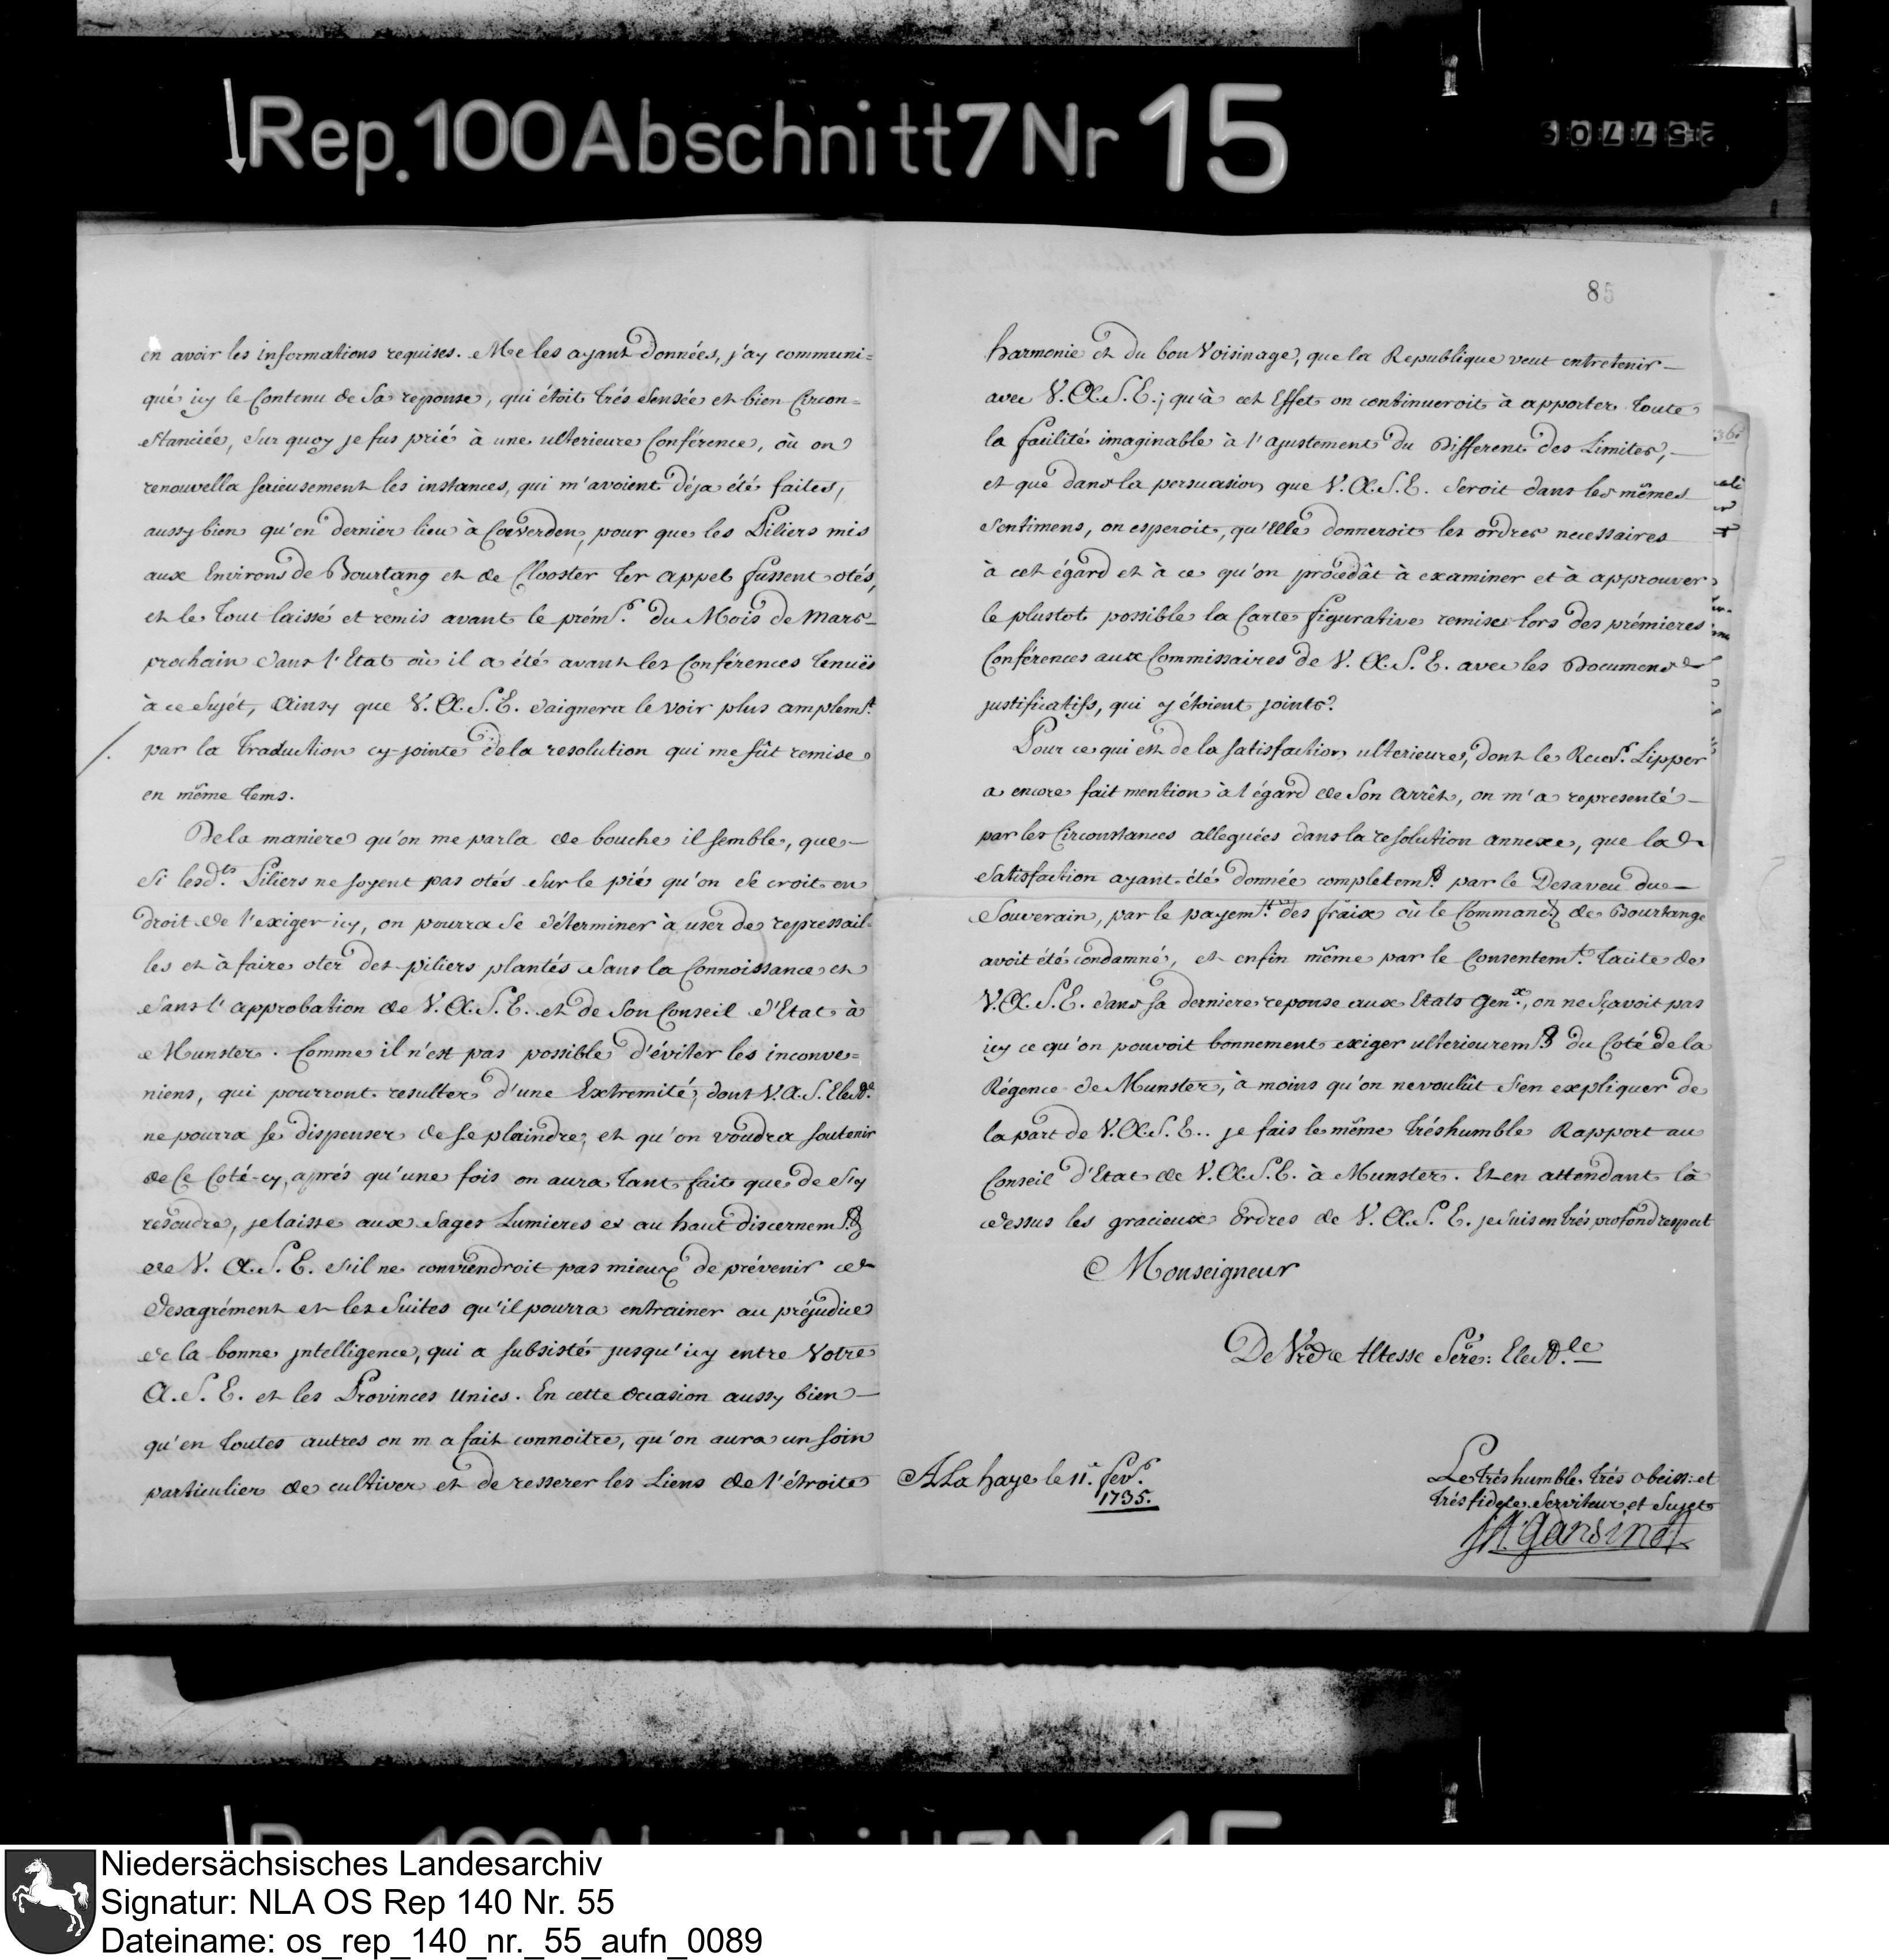 Rep. 100 Abschnitt 7 Nr 15
en avoir les informations requises. Me les ayant données, j'ay communi=
qué icy le Contenu de Sa reponse, qui étoit trés Sensée et bien Circon=
stanciée, Sur quoy je fus prié à une ulterieure Conférence, où on
renouvella serieusement les instances, qui m'avoient déja été faites,
aussy bien qu'en dernier lieu à Coeverden, pour que les Piliers mis
aux Environs de Bourtang et de Clooster ter Appel fussent otés,
et le tout laissé et remis avant le prém.r du Mois de Mars
prochain dans l'Etat où il a été avant les Conférences tenuës
à ce Sujét, Ainsy que V. A. S. E. daignera le voir plus amplem.t
par la Traduction cy-jointe de la resolution qui me fût remise
en même tems.
De la maniere qu'on me parla de bouche il semble, que
Si lesd.ts Piliers ne soyent pas otés Sur le pié qu'on Se croit en
droit de l'exiger icy, on pourra Se déterminer à user de repressail=
les et à faire oter des piliers plantés Sans la Connoissance et
Sans l'approbation de V. A. S. E. et de Son Conseil d'Etat à
Munster. Comme il n'est pas possible d'éviter les inconve=
niens, qui pourront resulter d'une Extremité, dont V. A. S. Elect.le
ne pourra se dispenser de se plaindre, et qu'on voudra soutenir
de Ce Coté-cy, aprés qu'une fois on aura tant fait que de S'y
resoudre, je laisse aux Sages Lumieres et au haut discernem.t
de V. A. S. E. s'il ne conviendroit pas mieux de prévenir ce
Desagrément et les Suites qu'il pourra entrainer au préjudice
de la bonne jntelligence, qui a subsisté jusqu'icy entre Votre
A. S. E. et les Provinces Unies. En cette Occasion aussy bien
qu'en toutes autres on m'a fait connoitre, qu'on aura un soin
particulier de cultiver et de resserer les Liens de l'étroite
85
harmonie et du bon Voisinage, que la Republique veut entretenir
avec V. A. S. E.; qu'à cet Effet on continueroit à apporter toute
la facilité imaginable à l'ajustement du Different des Limites,
et que dans la persuasion que V. A. S. E. Seroit dans les mêmes
Sentimens, on esperoit, qu'Elle donneroit les ordres necessaires
à cet égard et à ce qu'on procedât à examiner et à approuver
le plustot possible la Carte figurative remise lors des prémieres
Conférences aux Commissaires de V. A. S. E. avec les Documens
justificatifs, qui y étoient joints.
Pour ce qui est de la satisfaction ulterieure, dont le Recev.r Lipper
a encore fait mention à l'égard de Son Arrêt, on m'a representé
par les Circonstances alleguées dans la resolution annexe, que la
Satisfaction ayant été donnée completem.t par le Desaveu du
Souverain, par le payem.t des fraix où le Command.t de Bourtange
avoit été condamné, et enfin même par le Consentem.t tacite de
V. A. S. E. dans sa derniere reponse aux Etats Gen.x, on ne sçavoit pas
icy ce qu'on pouvoit bonnement exiger ulterieurem.t du Coté de la
Régence de Munster, à moins qu'on ne voulût S'en expliquer de
la part de V. A. S. E.. je fais le même tréshumble Rapport au
Conseil d'Etat de V. A. S. E. à Munster. Et en attendant là
dessus les gracieux Ordres de V. A. S. E. je suis en trés profond respect
Monseigneur
De Vre Altesse Sere: Elect.le
A La haye le 11.e fevr.
1735.
Le tréshumble, trés obeiss: et
trés fidele Serviteur et Sujet
Niedersächsisches Landesarchiv
Signatur: NLA OS Rep 140 Nr. 55
Dateiname: os_rep_140_nr._55_aufn_0089